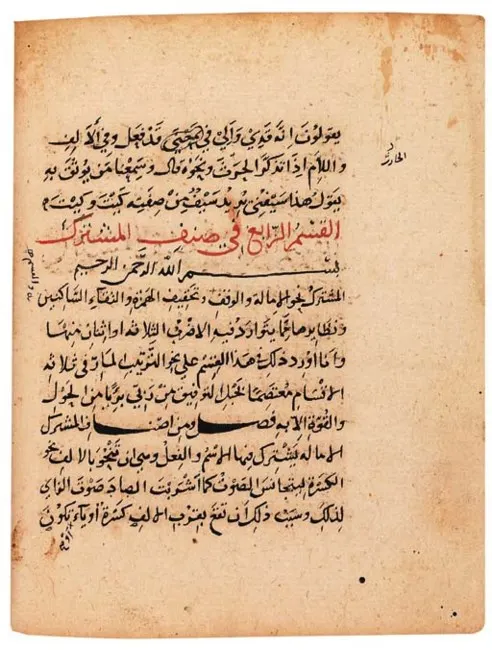 يقولون انه قدي والي في قد فعل وفي الالف
واللام اذا تذكر الحرث ونحوه قال وسمعنا من يوثق به
يقول هذا سيفني يريد سيف من صفته كيت وكيت
القسم الرابع في صنف المشترك
بسم الله الرحمن الرحيم
المشترك نحو الاماله والوقف وتخفيف الهمزة والتقاء الساكنين
ونظايرها مما يتوارد فيه الاضرب الثلاثه او اثنان منها
وانا اورد ذلك هذا القسم على نحو الترتيب المار في ثلاثه
الاقسام معتصما بحبل التوفيق من ربي بريا من الحول
والقوة الا به فصل ومن اصناف المشترك
الاماله يشترك فيها الاسم والفعل وهي ان تنحو بالالف نحو
الكسرة ليتجانس الصوت كما اشربت الصاد صوت الزاي
لذلك وسبب ذلك ان تقع بقرب الالف كسرة او ياء او تكون